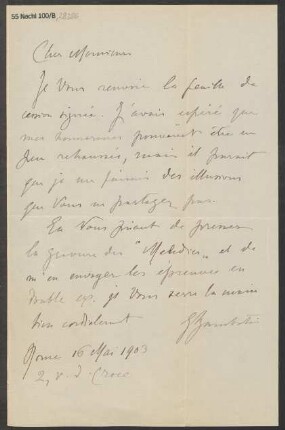 55 Nachl 100/B
Cher Monsieur
Je vous renvoie la feuille de
cession signée. J'avais espéré que
mes honoraires pouvaient être un
peu rehaussés, mais il parait
que je me faisais des illusions
que vous ne partagez pas.
En vous priant de presser
la gravure des "Melodies" et de
m'en envoyer les épreuves en
double ex. je vous serre la main
bien cordialement
GSgambati
Rome 16 Mai 1903
2, v. d. Croce